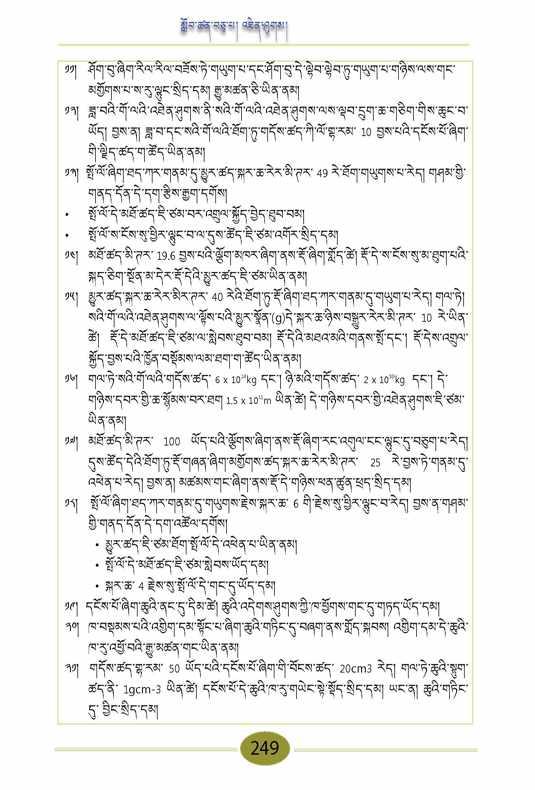 སློབ་ཚན་བཅུ་པ། འཐེན་ཤུགས།
༡༡། ཤོག་བུ་ཞིག་རིལ་རིལ་བཟོས་ཏེ་གཡུག་པ་དང་ཤོག་བུ་དེ་ལྷེབ་ལྷེབ་ཏུ་གཡུག་པ་གཉིས་ལས་གང་
མགྱོགས་པ་ས་རུ་ལྷུང་སྲིད་དམ། རྒྱུ་མཚན་ཅི་ཡིན་ནམ།
༡༢། ཟླ་བའི་གོ་ལའི་འཐེན་ཤུགས་ནི་སའི་གོ་ལའི་འཐེན་ཤུགས་ལས་ལྡབ་དྲུག་ཆ་གཅིག་གིས་ཆུང་བ་
ཡོད། བྱས་ན། ཟླ་བ་དང་སའི་གོ་ལའི་ཐོག་ཏུ་གདོས་ཚད་ཀི་ལོ་གྷ་རམ་ 10 བྱས་པའི་དངོས་པོ་ཞིག་
གི་ལྗིད་ཚད་ག་ཚོད་ཡིན་ནམ།
༡༣། སྤོ་ལོ་ཞིག་ཐད་ཀར་གནམ་དུ་མྱུར་ཚད་སྐར་ཆ་རེར་མི་ཊར་ 49 རེ་ཐོག་གཡུགས་པ་རེད། གཤམ་གྱི་
གནད་དོན་དེ་དག་རྩིས་རྒྱག་དགོས།
• སྤོ་ལོ་དེ་མཐོ་ཚད་ཇི་ཙམ་བར་འགྲུལ་སྐྱོད་བྱེད་ཐུབ་བམ།
• སྤོ་ལོ་ས་ངོས་སུ་ཕྱིར་ལྷུང་བ་ལ་དུས་ཚོད་ཇི་ཙམ་འགོར་སྲིད་དམ།
༡༤། མཐོ་ཚད་མི་ཊར་ 19.6 བྱས་པའི་ལྕོག་མཁར་ཞིག་ནས་རྡོ་ཞིག་གློད་ཚེ། རྡོ་དེ་ས་ངོས་སུ་མ་ཐུག་པའི་
སྐད་ཅིག་སྔོན་མ་དེར་རྡོ་དེའི་མྱུར་ཚད་ཇི་ཙམ་ཡིན་ནམ།
༡༥། མྱུར་ཚད་སྐར་ཆ་རེར་མི་ཊར་ 40 རེའི་ཐོག་ཏུ་རྡོ་ཞིག་ཐད་ཀར་གནམ་དུ་གཡུག་པ་རེད། གལ་ཏེ།
སའི་གོ་ལའི་འཐེན་ཤུགས་ལ་ལྟོས་པའི་མྱུར་སྣོན་(g)དེ་སྐར་ཆ་ཉིས་བསྒྱུར་རེར་མི་ཊར་ 10 རེ་ཡིན་
ཚེ། རྡོ་དེ་མཐོ་ཚད་ཇི་ཙམ་ལ་སླེབས་ཐུབ་བམ། རྡོ་དེའི་མཐའ་མའི་གནས་སྤོ་དང་། རྡོ་དེས་འགྲུལ་
སྐྱོད་བྱས་པའི་ཁྱོན་བསྡོམས་ལམ་ཐག་ག་ཚོད་ཡིན་ནམ།
༡༦། གལ་ཏེ་སའི་གོ་ལའི་གདོས་ཚད་ 6 x 10²⁴kg དང་། ཉི་མའི་གདོས་ཚད་ 2 x 10³⁰kg དང་། དེ་
གཉིས་དབར་གྱི་ཆ་སྙོམས་བར་ཐག 1.5 x 10¹¹m ཡིན་ཚེ། དེ་གཉིས་དབར་གྱི་འཐེན་ཤུགས་ཇི་ཙམ་
ཡིན་ནམ།
༡༧། མཐོ་ཚད་མི་ཊར་ 100 ཡོད་པའི་ལྕོགས་ཞིག་ནས་རྡོ་ཞིག་རང་འགུལ་ངང་ལྷུང་དུ་བཅུག་པ་རེད།
དུས་ཚོད་དེའི་ཐོག་ཏུ་རྡོ་གཞན་ཞིག་མགྱོགས་ཚད་སྐར་ཆ་རེར་མི་ཊར་ 25 རེ་བྱས་ཏེ་གནམ་དུ་
འཕེན་པ་རེད། བྱས་ན། མཚམས་གང་ཞིག་ནས་རྡོ་དེ་གཉིས་ཕན་ཚུན་ཕྲད་སྲིད་དམ།
༡༨། སྤོ་ལོ་ཞིག་ཐད་ཀར་གནམ་དུ་གཡུགས་རྗེས་སྐར་ཆ་ 6 གི་རྗེས་སུ་ཕྱིར་ལྷུང་བ་རེད། བྱས་ན་གཤམ་
གྱི་གནད་དོན་དེ་དག་འཚོལ་དགོས།
• མྱུར་ཚད་ཇི་ཙམ་ཐོག་སྤོ་ལོ་དེ་འཕེན་པ་ཡིན་ནམ།
• སྤོ་ལོ་དེ་མཐོ་ཚད་ཇི་ཙམ་སླེབས་ཡོད་དམ།
• སྐར་ཆ་ 4 རྗེས་སུ་སྤོ་ལོ་དེ་གང་དུ་ཡོད་དམ།
༡༩། དངོས་པོ་ཞིག་ཆུའི་ནང་དུ་དིམ་ཚེ། ཆུའི་འདེགས་ཤུགས་ཀྱི་ཁ་ཕྱོགས་གང་དུ་གཏད་ཡོད་དམ།
༢༠། ཁ་བསྡམས་པའི་འགྱིག་དམ་སྟོང་པ་ཞིག་ཆུའི་གཏིང་དུ་བཞག་ནས་གློད་སྐབས། འགྱིག་དམ་དེ་ཆུའི་
ཁ་རུ་འཕྱོ་བའི་རྒྱུ་མཚན་གང་ཡིན་ནམ།
༢༡། གདོས་ཚད་གྷ་རམ་ 50 ཡོད་པའི་དངོས་པོ་ཞིག་གི་བོངས་ཚད་ 20cm3 རེད། གལ་ཏེ་ཆུའི་སྟུག་
ཚད་ནི་ 1gcm-3 ཡིན་ཚེ། དངོས་པོ་དེ་ཆུའི་ཁ་རུ་གཡེང་སྟེ་སྡོད་སྲིད་དམ། ཡང་ན། ཆུའི་གཏིང་
དུ་ བྱིང་སྲིད་དམ།
249